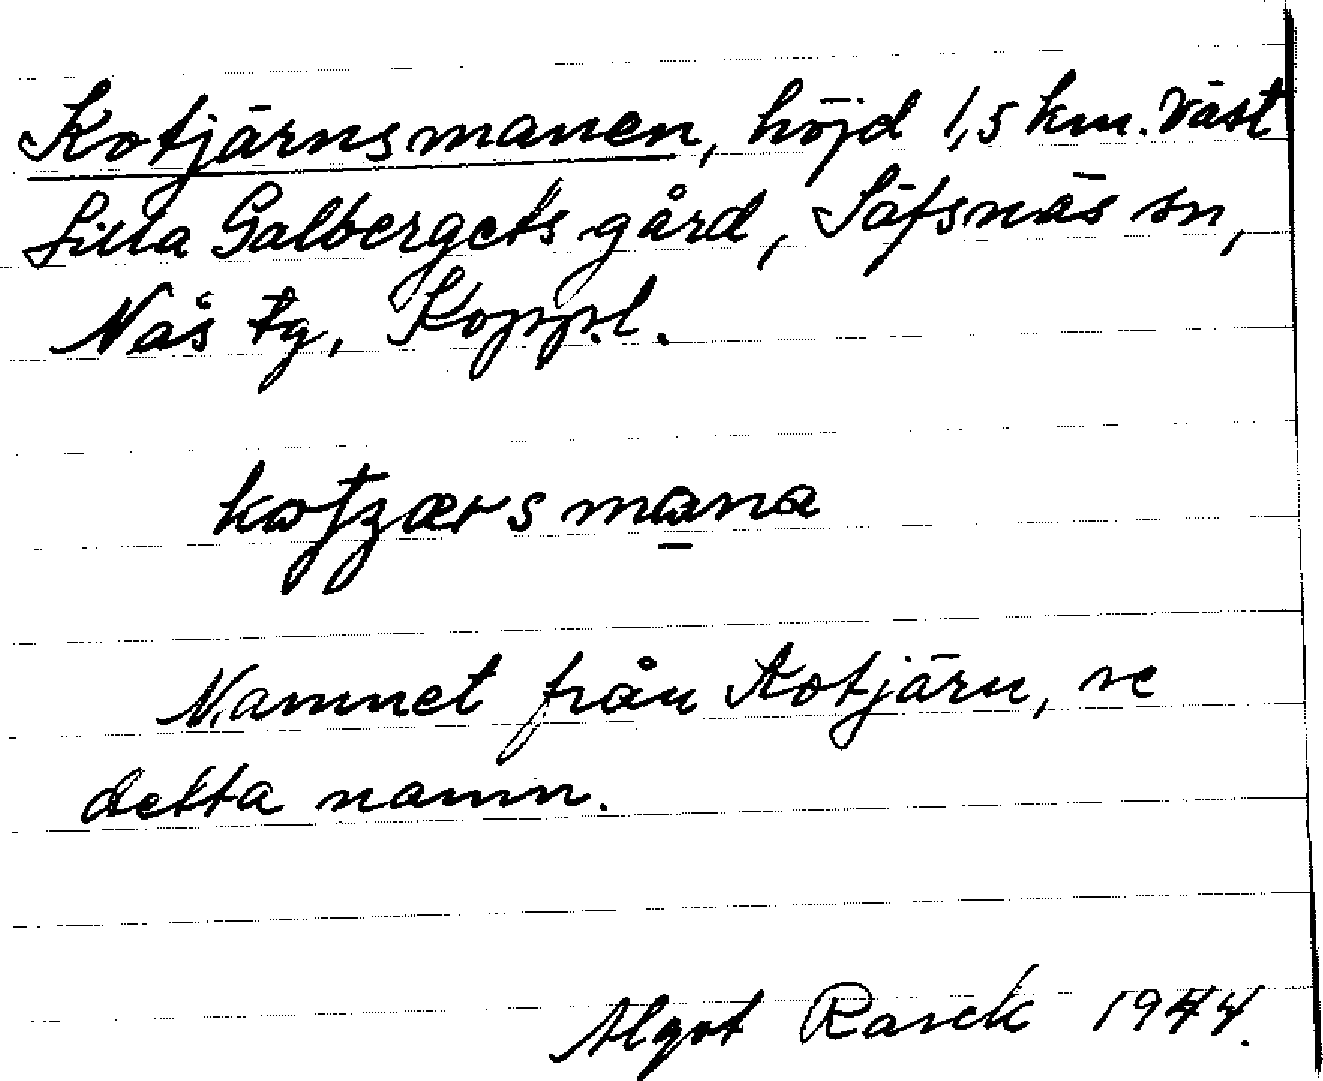 Kotjärnsmanen, höjd 1,5 km. väst
Lilla Galbergets gård, Säfsnäs sn,
Nås tg, Koppl.
Namnet från Kotjärn, se
detta namn.
Algot Rasck 1944.